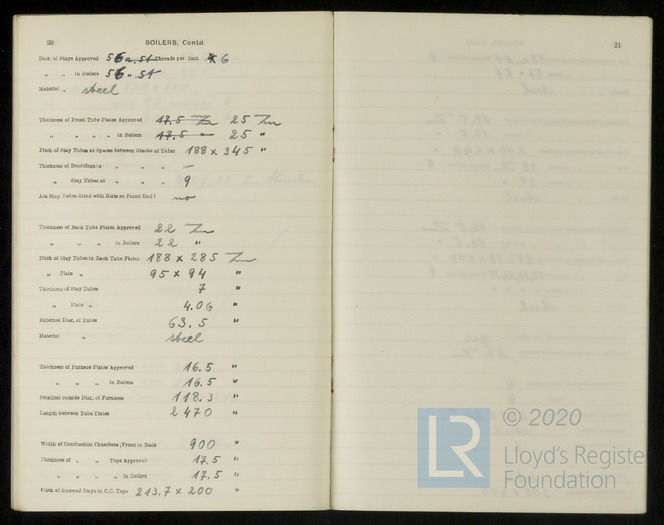 20
BOILERS, Contd.
Diar. of Stays Approved 56 a. 54 Threads per Inch 6
„ „ in Boilers 56 „ 54
Material „ steel
Thickness of Front Tube Plates Approved 17.5 m/m 25 m/m
„ „ „ „ in Boilers 17.5 „ 25 "
Pitch of Stay Tubes at Spaces between Stacks of Tubes 188 x 345 "
Thickness of Doublings in „ „ „ –
„ Stay Tubes at „ „ „ 9
Are Stay Tubes fitted with Nuts at Front End? no
Thickness of Back Tube Plates Approved 22 m/m
„ „ „ in Boilers 22 "
Pitch of Stay Tubes in Back Tube Plates 188 x 285 m/m
„ Plain „ 95 x 94 "
Thickness of Stay Tubes 7 "
„ Plain „ 4.06 "
External Diar. of Tubes 63.5 "
Material „ steel
Thickness of Furnace Plates Approved 16.5 "
„ „ „ in Boilers 16.5 "
Smallest outside Diar. of Furnaces 118.3 "
Length between Tube Plates 2470 "
Width of Combustion Chambers (Front to Back 900 "
Thickness of „ „ Tops Approved 17.5 "
„ „ „ „ in Boilers 17.5 "
Pitch of Screwed Stays in C.C. Tops 213.7 x 200 "
21
LR
© 2020
Lloyd's Register
Foundation